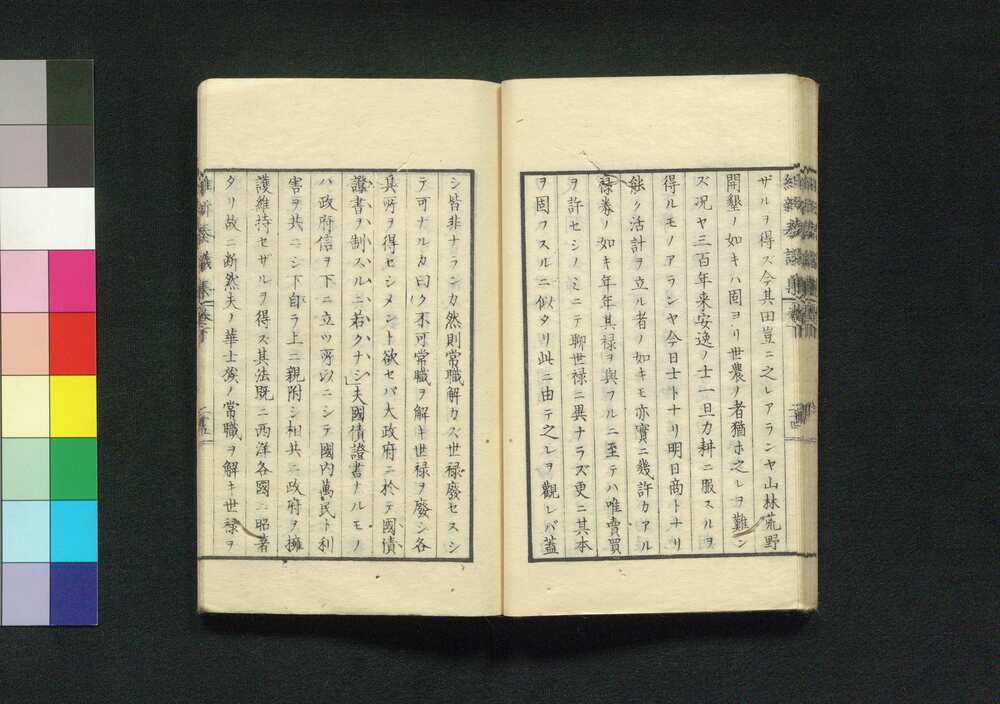 ザルヲ得ズ今其田豈ニ之レアランヤ山林荒野
開墾ノ如キハ固ヨリ世農ノ者猶ホ之レヲ難ン
ズ况ヤ三百年来安逸ノ士一旦力耕ニ服スルヲ
得ルモノアランヤ今日士トナリ明日商トナリ
能ク活計ヲ立ル者ノ如キモ亦實ニ幾許カアル
禄券ノ如キ年年其禄ヲ與フルニ至テハ唯賣買
ヲ許セシノミニテ聊世禄ニ異ナラズ更ニ其本
ヲ固フスルニ似タリ此ニ由テ之レヲ觀レバ蓋
シ皆非ナランカ然則常職解カズ世禄廢セスシ
テ可ナルカ曰ク不可常職ヲ解キ世禄ヲ廢シ各
其所ヲ得セシメント欲セバ大政府ニ於テ國債
證書ヲ制スルニ若クナシ夫國債證書ナルモノ
ハ政府信ヲ下ニ立ツ所以ニシテ國内萬民ト利
害ヲ共ニシ下自ラ上ニ親附シ相共ニ政府ヲ擁
護維持セザルヲ得ズ其法既ニ西洋各國ニ昭著
タリ故ニ断然夫ノ華士族ノ常職ヲ解キ世禄ヲ